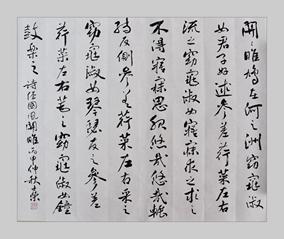 關〻雎鳩在河之洲窈窕淑
女君子好逑參差荇菜左右
流之窈窕淑女寤寐求之求之
不得寤寐思服悠哉悠哉輾
轉反側參差荇菜左右采之
窈窕淑女琴瑟友之參差
荇菜左右芼之窈窕淑女鐘
鼓樂之 詩經國風關雎 丙申仲秋